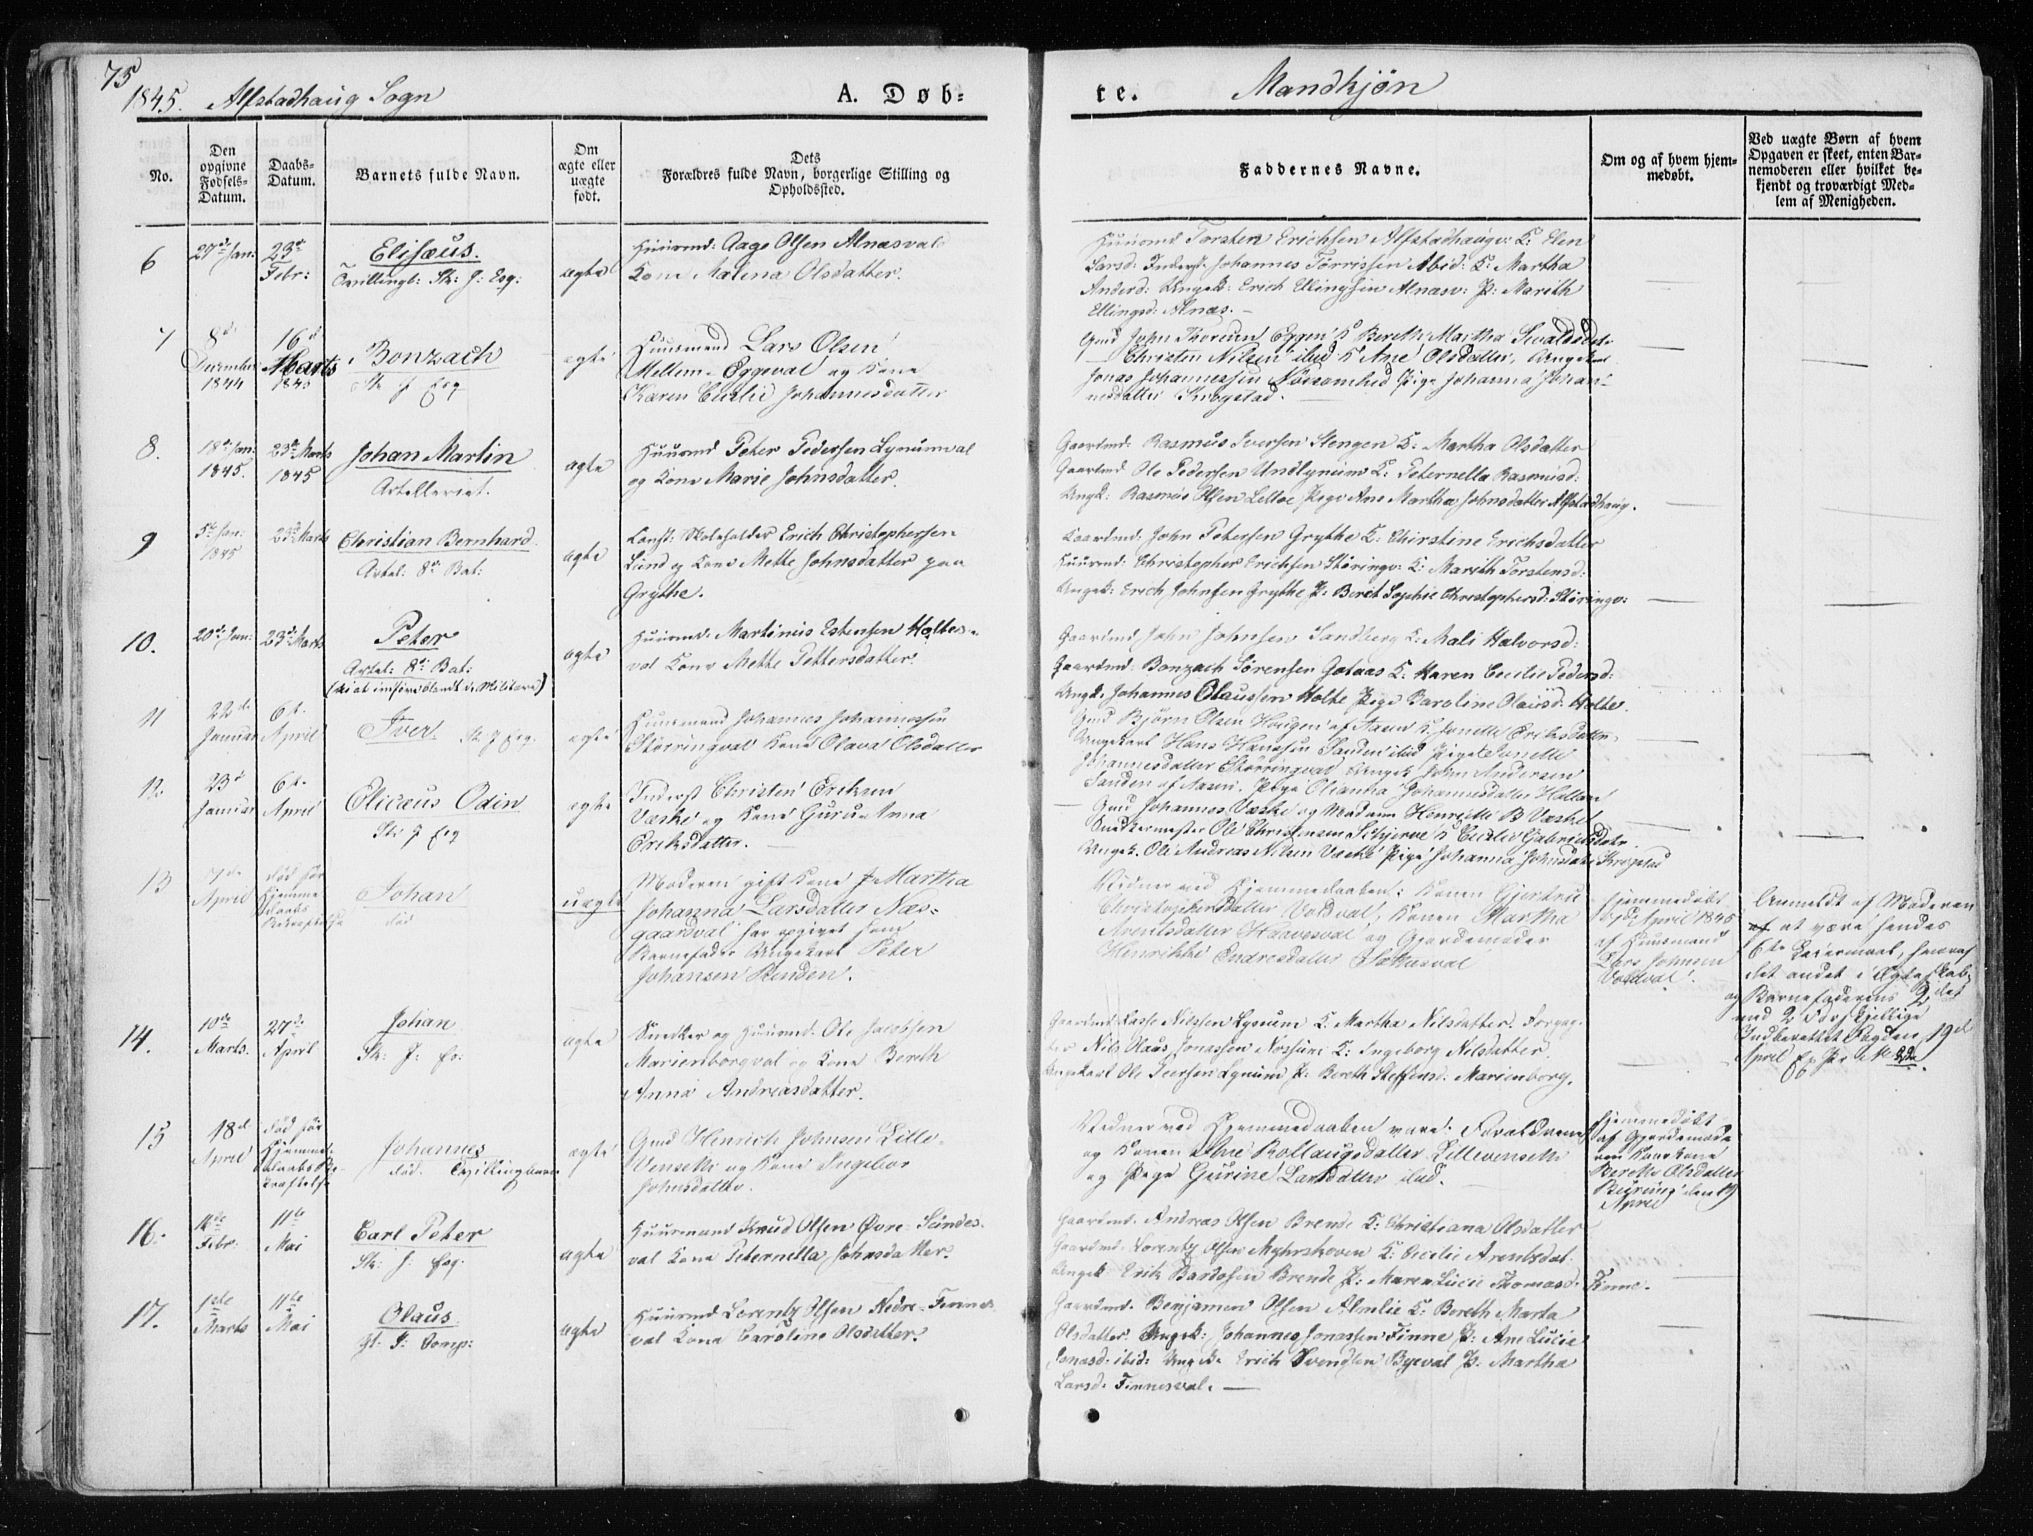 75
1845. Alfstadhaug Sogn
A. Døb-
te.
Mandkjøn
No.
Den
opgivne
Fødsels-
Datum.
Daabs-
Datum.
Barnets fulde Navn.
Om
ægte eller
uægte
født.
Dets
Forældres fulde Navn, borgerlige Stilling og
Opholdssted.
Faddernes Navne.
Om og af hvem hjem-
medøbt.
Ved uægte Børn af hvem
Opgaven er skeet, enten Bar-
nemoderen eller hvilket be-
kjendt og troværdigt Med-
lem af Menigheden.
6
27de Jan:
23de
Febr:
Elisæus.
Tvillingb: Sk: J: Esg:
ægte
Huusmd: Aage Olsen Alnæsval
Kone Malena Olsdatter.
Huusmd Torsten Erichsen Alfstadhaugv: K: Elen
Larsd: Inderst Johannes Tørrissen ibid: K: Martha
Andersd: Ungk: Erich Ellingsen Alnæsv: P: Marith
Ellingsd: Alnæs.
7
8de
December
1844
16d
Marts
1845
Bonzach
Sk J Esg
ægte
Huusmand Lars Olsen
Mellem-Eggeval og Kone
Karen Cecilie Johannesdatter
Gmd John Eggen K Bereth Martha Sivaldsdat-
Christen Nilsen ibid K Ane Olsdatter, Ungekarl
Jonas Johannessen Nørsamhed Pige Johanna Johan-
nesdatter Krogstad.
8.
18de Jan:
1845.
23de Marts
1845
Johan Martin
Artelleriet.
ægte
Huusmd Peter Pedersen Lynumval
og Kone Marie Johnsdatter.
Gaardmd: Rasmus Iversen Stengen K: Martha Olsdatter
Gaardmd Ole Pedersen Undlynum K: Peternella Rasmusd:
Ungk: Rasmus Olsen Lilloe Pige Ane Martha Johnsdatter Alfstadhaug.
9
5te Jan:
1845
23de Marts
Christian Bernhard.
Artel: 8de Bat:
ægte
Const: Skoleholder Erich Christophersen
Lund og Kone Mette Johnsdatter paa
Grythe.
Gaardmd: John Petersen Grythe K: Chirstine Erichsdatter
Huusmd: Christopher Erichsen Støringv: K: Marith Torstensd:
Ungk: Erich Johnsen Grythe P: Berit Sophie Christophersd: Støringv:
10.
20de Jan:
23de Marts
Peter
Artel: 8de Bat:
(ei at indføre blandt de Militære)
ægte
Huusmd: Martinus Estensen Holtes-
val Kone Mette Pettersdatter.
Gaardmd John Johnsen Sandberg K: Mali Halvorsd:
Gaardmd: Bonzach Sørensen Gotaas K: Karen Cecilie Pedersd:
Ungk: Johannes Olaussen Holte Pige Karoline Olausd: Holte.
11
22de
Januar
6te
April
Iver. Sk J Esg.
ægte
Huusmand Johannes Johannessen
Størringval Kone Olava Olsdatter
Gmd Bjørn Olsen Hougen af Aasen K Jonette Eriksdatter
Ungekarl Hans Hanssen Sanden ibid Pige Jonette
Johannesdatter Størringval Ungk John Andersen
Sanden af Aasen. Pige Oliantha Johannesdatter Hollan
12
23d
Januar
6te
April
Elicæus Odin
Sk J Esg
ægte
Inderst Christen Eriksen
Væske og Kone Guruanna
Eriksdatter.
Gmd Johannes Væske og Madam Henriette B Væske
Snedkermester Ole Christensen Skjerve K Cecilie Gabrielsdatr
Ungk. Ole Andreas Nilsen Væske Pige Johanna Johnsdatr Krogstad
13
7de
April
død før
Hjemme
daabs
Bekræftelse
Johan
død
uægte
Moderen gift Kone Martha
Johanna Larsdatter Næs-
gaardval har opgivet som
Barnefader Ungekarl Peter
Johansen Rinden.
Vidner ved Hjemmedaaben: Konen Gjertrue
Christophersdatter Voldval, Konen Martha
Arentsdatter Haavesval og Gjordemoder
Henrikke Endresdatter
Hjemmedøbt
den April 1845
af Huusmand
Lars Johnsen
Voldval.
Anmeldt af Moderen
at være hendes
6te Leiermaal, hvoraf
det andet i Ægteskab
og Barnefaderens 2det
med 2 forskjellige
Indberettet Fogden 19d
April
14.
10de
Marts.
27de
April
Johan
Sk: J: Es:
ægte
Snedker og Huusmd: Ole Jacobsen
Marienborgval og Kone Bereth
Anna Andreasdatter.
Gaardmd Lasse Nilssen Lynum K. Martha Nilsdatter. Forpag-
ter Nils Olaus Jonassen Nossum K: Ingeborg Nilsdatter.
Ungekarl Ole Peersen Lynum P: Bereth Steffensd: Marienborg.
15
18d
April
død før
Hjemme-
daabs Be-
kræftelse
Johannes
død. Tvillingbarn
ægte
Gmd Hinrich Johnsen Lille-
Venseth og Kone Ingebor
Johnsdatter.
Vidner ved Hjemmedaaben vare: Forældrene
og Konen Ane Kollaugsdatter Lillevenseth
og Pige Gurine Larsdatter ibid.
Hjemmedøbt
af Gjordemode
ren
Berethe Olsdatter
Beirung den 19
April
16.
14de
Febr.
11te
Mai
Carl Peter
Sk: J: Esg:
ægte
Huusmand Knud Olsen Øvre-Sundes-
val Kone Peternella Johnsdatter.
Gaardmd. Andreas Olsen Brende K: Christiana Olsdatter
Gaardmd. Lorentz Olsen Myhrskoven K: Cecilie Arentsdat.
Ungk: Erik Bardosen Brende P: Maren Lucie Thomasd: Finne.
17.
1ste
Marts
11te
Mai
Olaus
St: J: Comp:
ægte
Huusmd Lorentz Olsen Nedre-Finnes
val Kone Caroline Olsdatter.
Gaardmd. Benjamin Olsen Almlie K: Bereth Marta
Olsdatter. Ungk: Johannes Jonassen Finne P: Ane Lucie
Jonasd: ibid: Ungk Erich Svendsen Byeval P: Martha
Larsd: Finnesval.